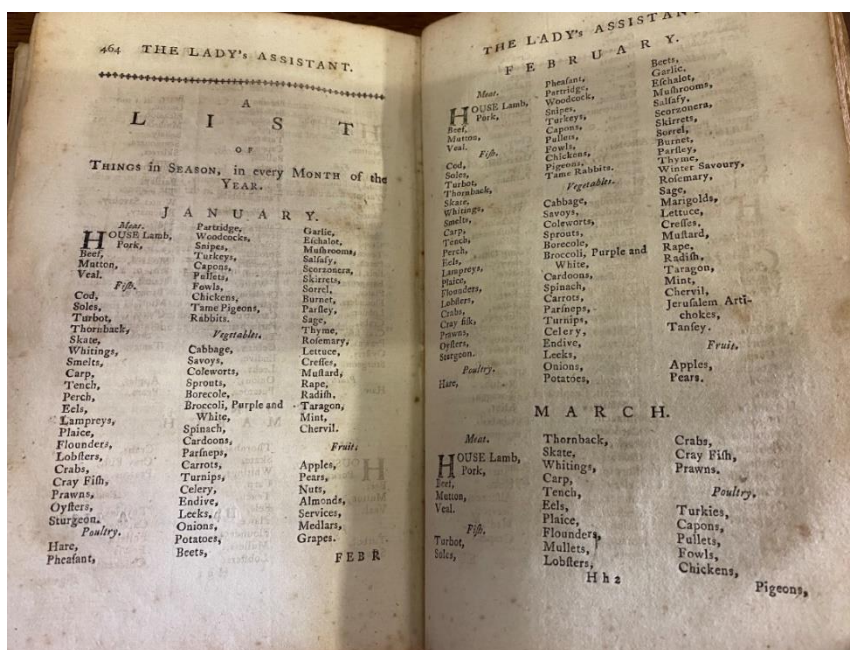 464 THE LADY's ASSISTANT.
A
LIST
OF
THINGS in SEASON, in every MONTH of the
YEAR.
JANUARY.
Meat.
HOUSE Lamb,
Pork,
Beef,
Mutton,
Veal.
Fiſh.
Cod,
Soles,
Turbot,
Thornback,
Skate,
Whitings,
Smelts,
Carp,
Tench,
Perch,
Eels,
Lampreys,
Plaice,
Flounders,
Lobſters,
Crabs,
Cray Fiſh,
Prawns,
Oyſters,
Sturgeon.
Poultry.
Hare,
Pheaſant,
Partridge,
Woodcocks,
Snipes,
Turkeys,
Capons,
Pullets,
Fowls,
Chickens,
Tame Pigeons,
Rabbits.
Vegetables.
Cabbage,
Savoys,
Coleworts,
Sprouts,
Borecole,
Broccoli, Purple and
White,
Spinach,
Cardoons,
Parſneps,
Carrots,
Turnips,
Celery,
Endive,
Leeks,
Onions,
Potatoes,
Beets,
Garlic,
Eſchalot,
Muſhrooms,
Salſafy,
Scorzonera,
Skirrets,
Sorrel,
Burnet,
Parſley,
Sage,
Thyme,
Roſemary,
Lettuce,
Creſſes,
Muſtard,
Rape,
Radiſh,
Taragon,
Mint,
Chervil.
Fruit.
Apples,
Pears,
Nuts,
Almonds,
Services,
Medlars,
Grapes.
FEBR
THE LADY's ASSISTAN
FEBRUARY.
Meat.
HOUSE Lamb,
Pork,
Beef,
Mutton,
Veal.
Fiſh.
Cod,
Soles,
Turbot,
Thornback,
Skate,
Whitings,
Smelts,
Carp,
Tench,
Perch,
Eels,
Lampreys,
Plaice,
Flounders,
Lobſters,
Crabs,
Cray fiſh,
Prawns,
Oyſters,
Sturgeon.
Poultry.
Hare,
Pheaſant,
Partridge,
Woodcock,
Snipes,
Turkeys,
Capons,
Pullets,
Fowls,
Chickens,
Pigeons,
Tame Rabbits.
Vegetables.
Cabbage,
Savoys,
Coleworts,
Sprouts,
Borecole,
Broccoli, Purple and
White,
Cardoons,
Spinach,
Carrots,
Parſneps,
Turnips,
Celery,
Endive,
Leeks,
Onions,
Potatoes,
Beets,
Garlic,
Eſchalot,
Muſhrooms,
Salſafy,
Scorzonera,
Skirrets,
Sorrel,
Burnet,
Parſley,
Thyme,
Winter Savoury,
Roſemary,
Sage,
Marigolds,
Lettuce,
Creſſes,
Muſtard,
Rape,
Radiſh,
Taragon,
Mint,
Chervil,
Jeruſalem Arti-
chokes,
Tanſey.
Fruit.
Apples,
Pears.
MARCH.
Meat.
HOUSE Lamb,
Pork,
Beef,
Mutton,
Veal.
Fiſh.
Turbot,
Soles,
Thornback,
Skate,
Whitings,
Carp,
Tench,
Eels,
Plaice,
Flounders,
Mullets,
Lobſters,
Crabs,
Cray Fiſh,
Prawns.
Poultry.
Turkies,
Capons,
Pullets,
Fowls,
Chickens,
H h 2
Pigeons,